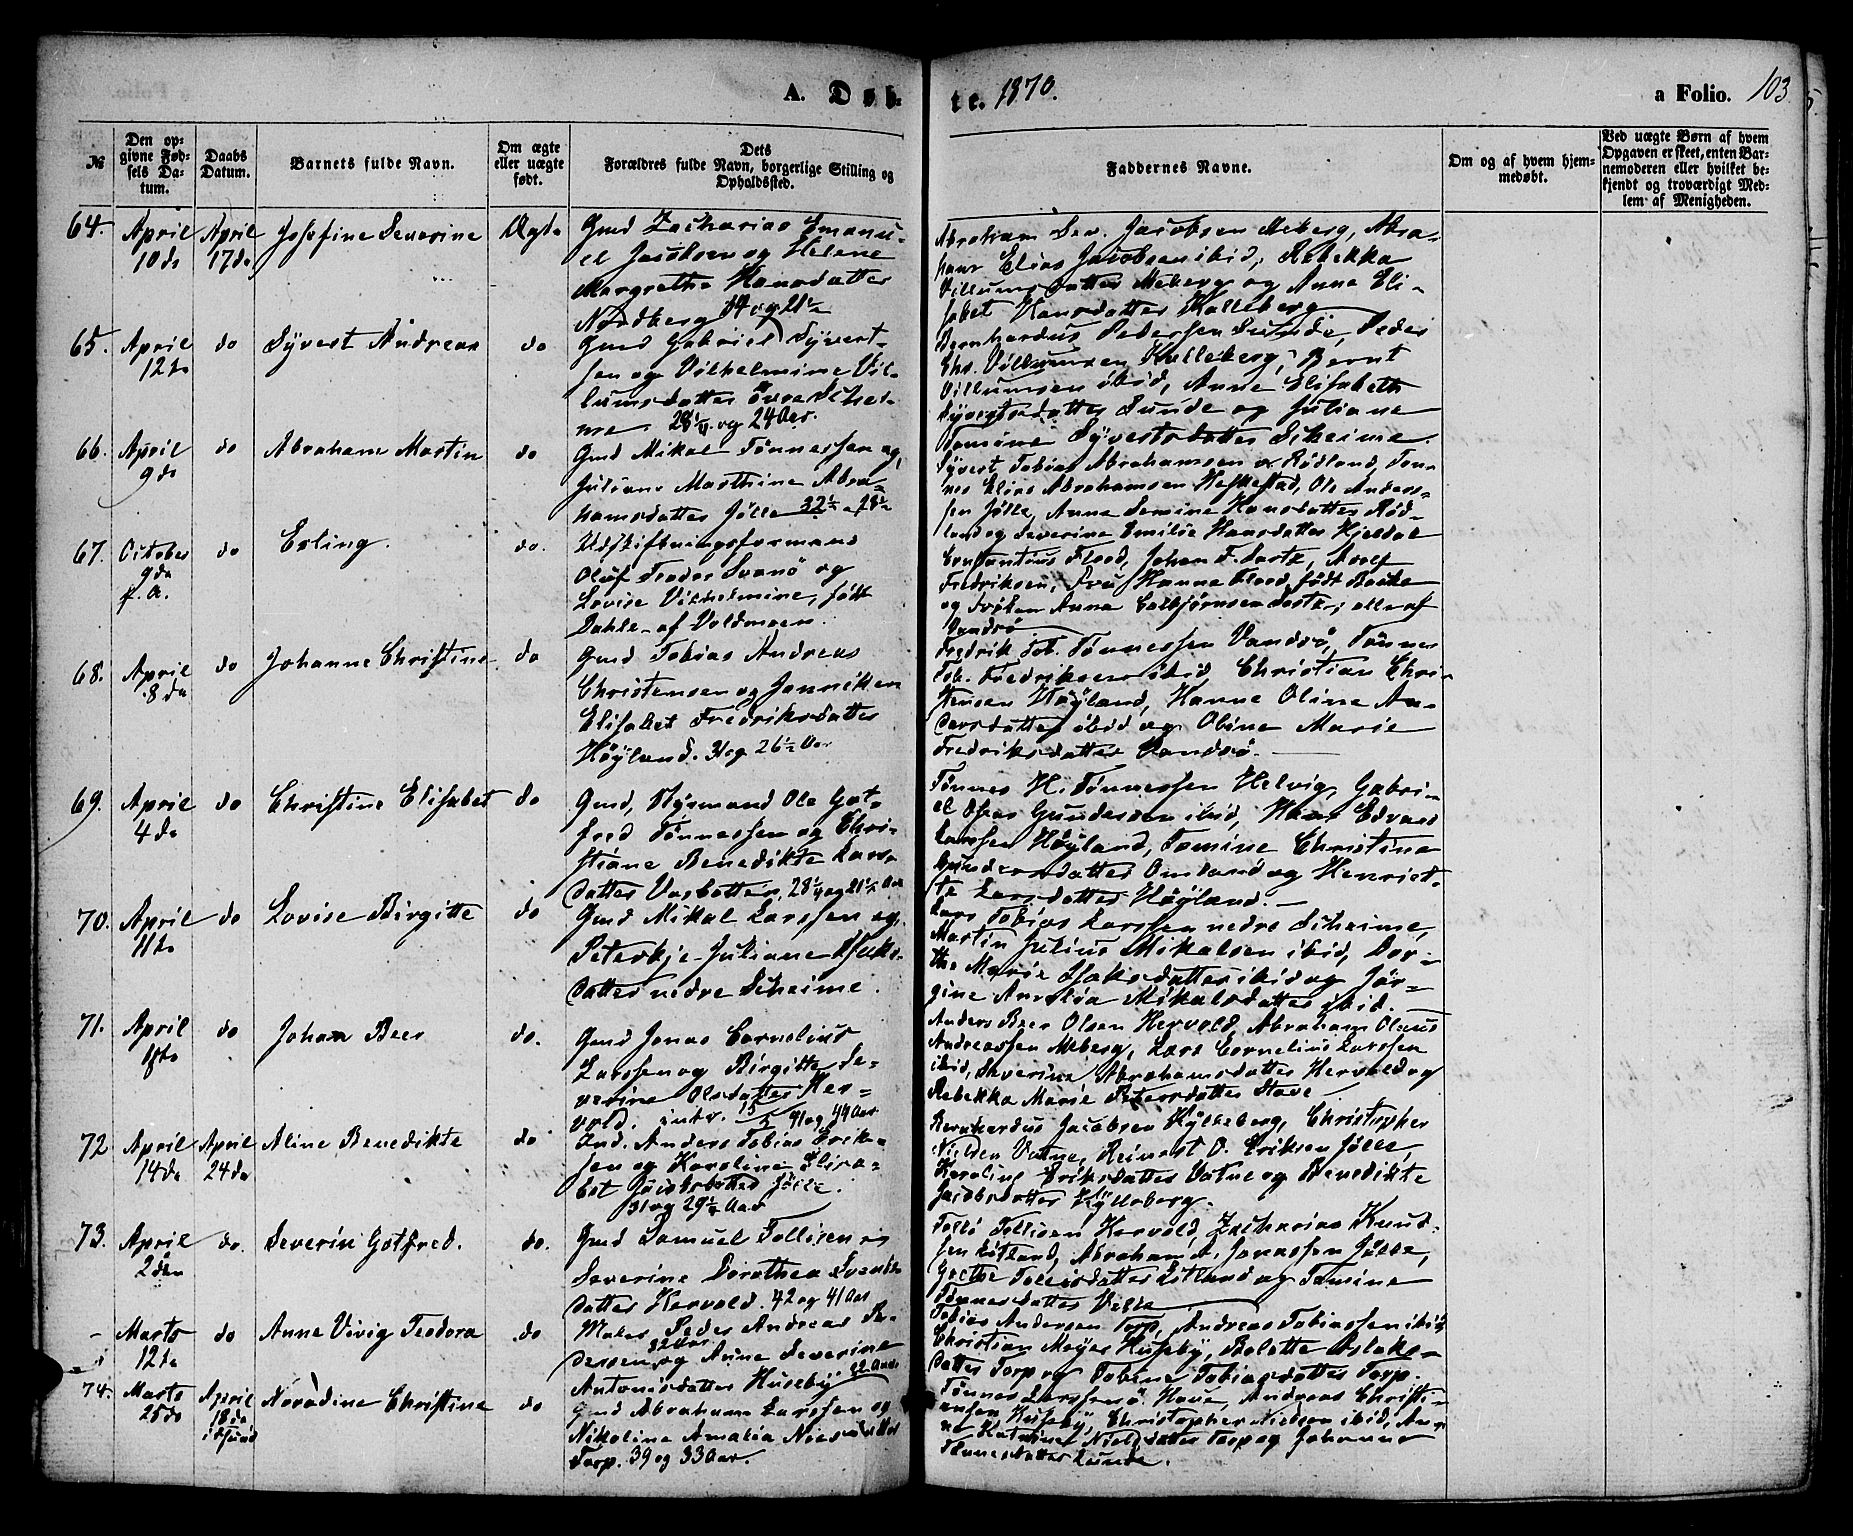 A. Døb-
te. 1870.
a Folio. 103
№
Den op-
givne Fød-
sels Da-
tum.
Daabs
Datum.
Barnets fulde Navn.
Om ægte
eller uægte
født.
Dets
Forældres fulde Navn, borgerlige Stilling og
Opholdssted.
Faddernes Navne.
Om og af hvem hjem-
medøbt.
Ved uægte Børn af hvem
Opgaven er skeet, enten Bar-
nemoderen eller hvilket be-
kjendt og troværdigt Med-
lem af Menigheden.
64. April 10de
April 17de
Josefine Severine
Ægte
Gmd Zacharias Emanu-
el Jacobsen og Helene
Margrethe Hansdatter
Nordberg 34 og 21½
Abraham Sev. Jacobsen Meberg, Abra-
ham Elias Jacobsen ibid, Rebekka
Villumsdatter Meberg og Anne Eli-
sabet Hansdatter Kalleberg
65. April 12te
do
Syvert Andreas
do
Gmd Gabriel Syvert-
sen og Vilhelmine Vil-
lumsdatter øvre Schei-
me. 28¼ og 24 Aar.
Bernhardus Pedersen Sunde, Peder
Chr. Villumsen Kalleberg, Bernt
Villumsen ibid, Anne Elisabeth
Syvertsdatter Sunde og Juliane
Tomine Syvertsdatter Scheime.
66. April 9de
do
Abraham Martin
do
Gmd Mikal Tønnessen og
Juliane Marthine Abra-
hamsdatter Jølle 32½ og 28½
Syvert Tobias Abrahamsen Rødland, Tøn-
nes Elias Abrahamsen Heskestad, Ole Anders-
sen Jølle, Anne Semine Hansdatter Rød-
land og Severine Emilie Hansdatter Hjeldal
67. October 9de f. A.
do
Erling.
do.
Udskiftningsformand
Oluf Teodor Svanø og
Lovise Vilhelmine, født
Dahle af Voldmoen.
Constantius Flood, Johan F. Doste, Adolf
Fredriksen, Fru Hanne Flood, født Bache
og Frøken Anna Doste, alle af
Vandsø
68. April 8de
do
Johanne Christine
do
Gmd Tobias Andreas
Christensen og Jenniken
Elisabet Fredriksdatter
Høyland. 31 og 26½ Aar
Fredrik Tob. Tønnessen Vandsø, Tønnes
Tob. Fredriksen ibid, Christian Chri-
stensen Høyland, Hanne Oline An-
dersdatter ibid og Oline Marie
Fredriksdatter Vandsø.
69. April 4de
do
Christine Elisabet
do
Gmd, Styrmand Ole Got-
fred Tønnessen og Chri-
stiane Benedikte Lars-
datter Vasbotten, 28¼ og 21½ Aar
Tønnes H. Tønnessen Helvig, Gabri-
el Gundersen ibid, Hans Edvard
Larssen Høyland, Tomine Christine
Gundersdatter Omland og Henriet-
te Larsdatter Høyland.
70. April 11te
do
Lovise Birgitte
do
Gmd Mikal Larssen og
Peterkje Juliane Isaks-
datter nedre Scheime.
Lars Tobias Larssen nedre Scheime,
Martin Julius Mikalsen ibid, Dor-
the Marie Isaksdatter ibid og Jør-
gine Amalia Mikalsdatter ibid.
71. April
do
Johan Beer
do.
Gmd Jonas Cornelius
Larssen og Birgitte Se-
verine Olsdatter Her-
vold. 41 og 44 Aar
Anders Beer Olsen Hervold, Abraham Olaus
Andreassen Meberg, Lars Cornelius Larssen
ibid, Severine Abrahamsdatter Hervold og
Rebekka Marie Petersdatter Stave
72 April 14de
April 24de
Aline Benedikte
do
Gmd. Anders Tobias Erik-
sen og Karoline Elisa-
bet Jacobsdatter Jølle.
31 og 29½ Aar
Bernhardus Jacobsen Kylleberg, Christopher
Nielsen Vatne, Reinert O. Eriksen Jølle,
Karoline Eriksdatter Vatne og Benedikte
Jacobsdatter Kylleberg.
73. April 2den
do.
Severin Gotfred.
do.
Gmd Samuel Tollisen og
Severine Dorothea Svends-
datter Hervold. 42 og 41 Aar
Tolli Tollisen Hervold, Zacharias Knud-
sen Østland, Abraham A. Jonassen Jølle,
Grethe Tollisdatter Østland og Tomine
Tønnesdatter Ville
- Marts 12te
do
Anne Vivig Teodora
do
Maler Peder Andreas Pe-
dersen 32 Aar og Anne Severine
Antonisdatter Huseby 22 Aar
Tobias Andersen Torp, Andreas Tobiassen ibid,
Christian Meyer Huseby, Bolette Aslaks-
datter Torp og Tobine Tobiasdatter Torp.
74. Marts 25de
April 18de i Husum
Noradine Christine
do
Gmd Abraham Larssen og
Nikoline Amalia Nielsdatter
Torp. 39 og 33 Aar.
Tønnes Larssen Haue, Andreas Christi-
ansen Huseby, Christopher Nielsen ibid, An-
ne Katrine Nielsdatter Torp og Johanne
Lunde.